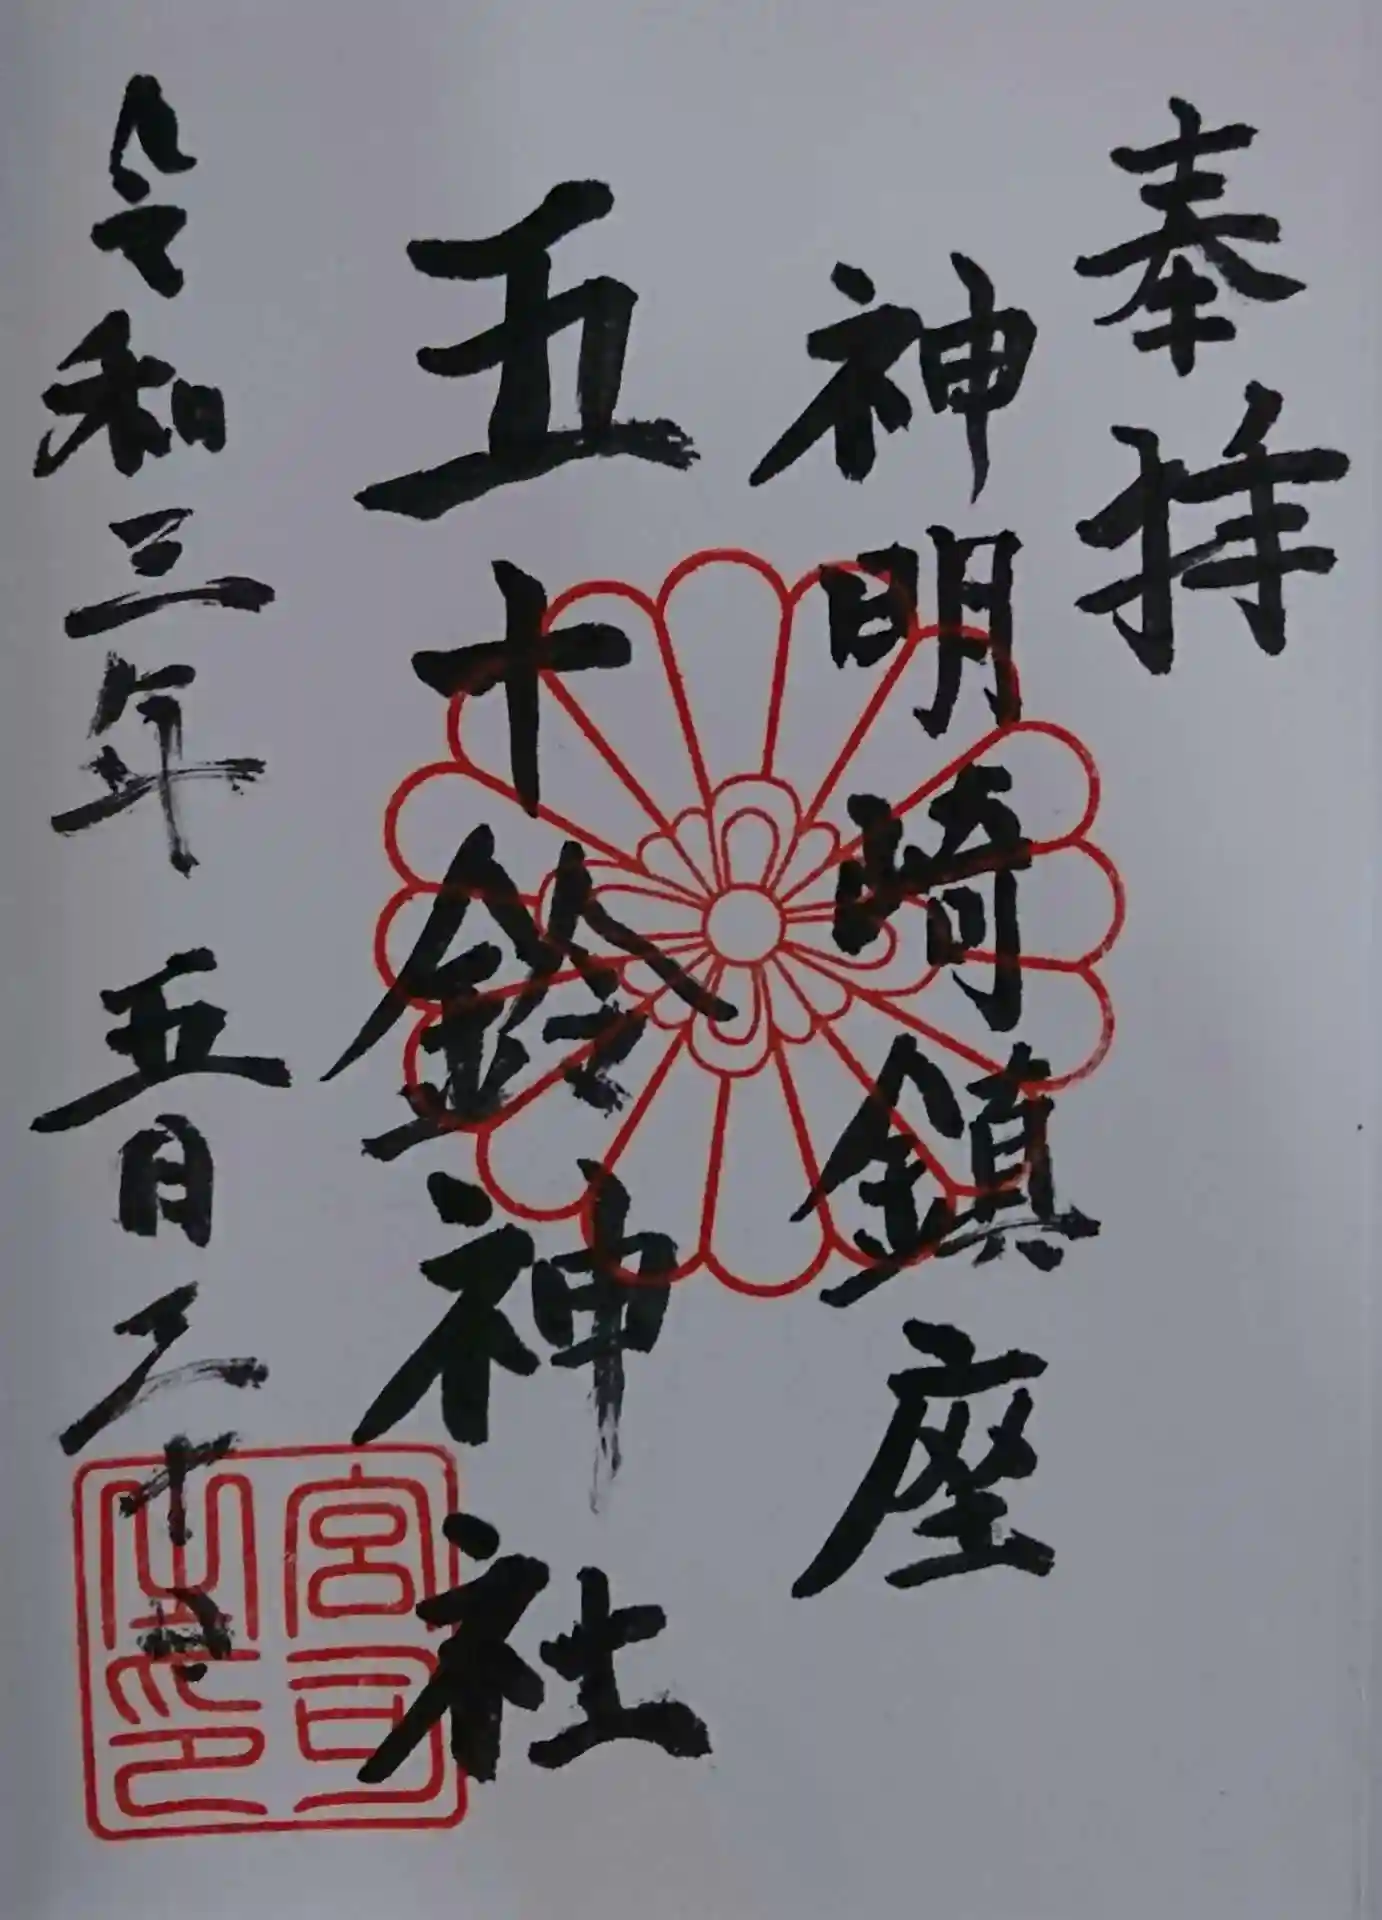 奉拝
神明崎鎮座
五十鈴神社
令和三年 五月二十
宮司之印